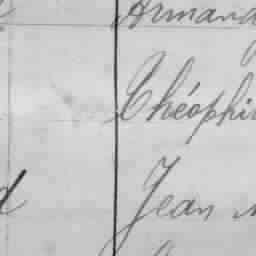 Armand
Théophi
Jean